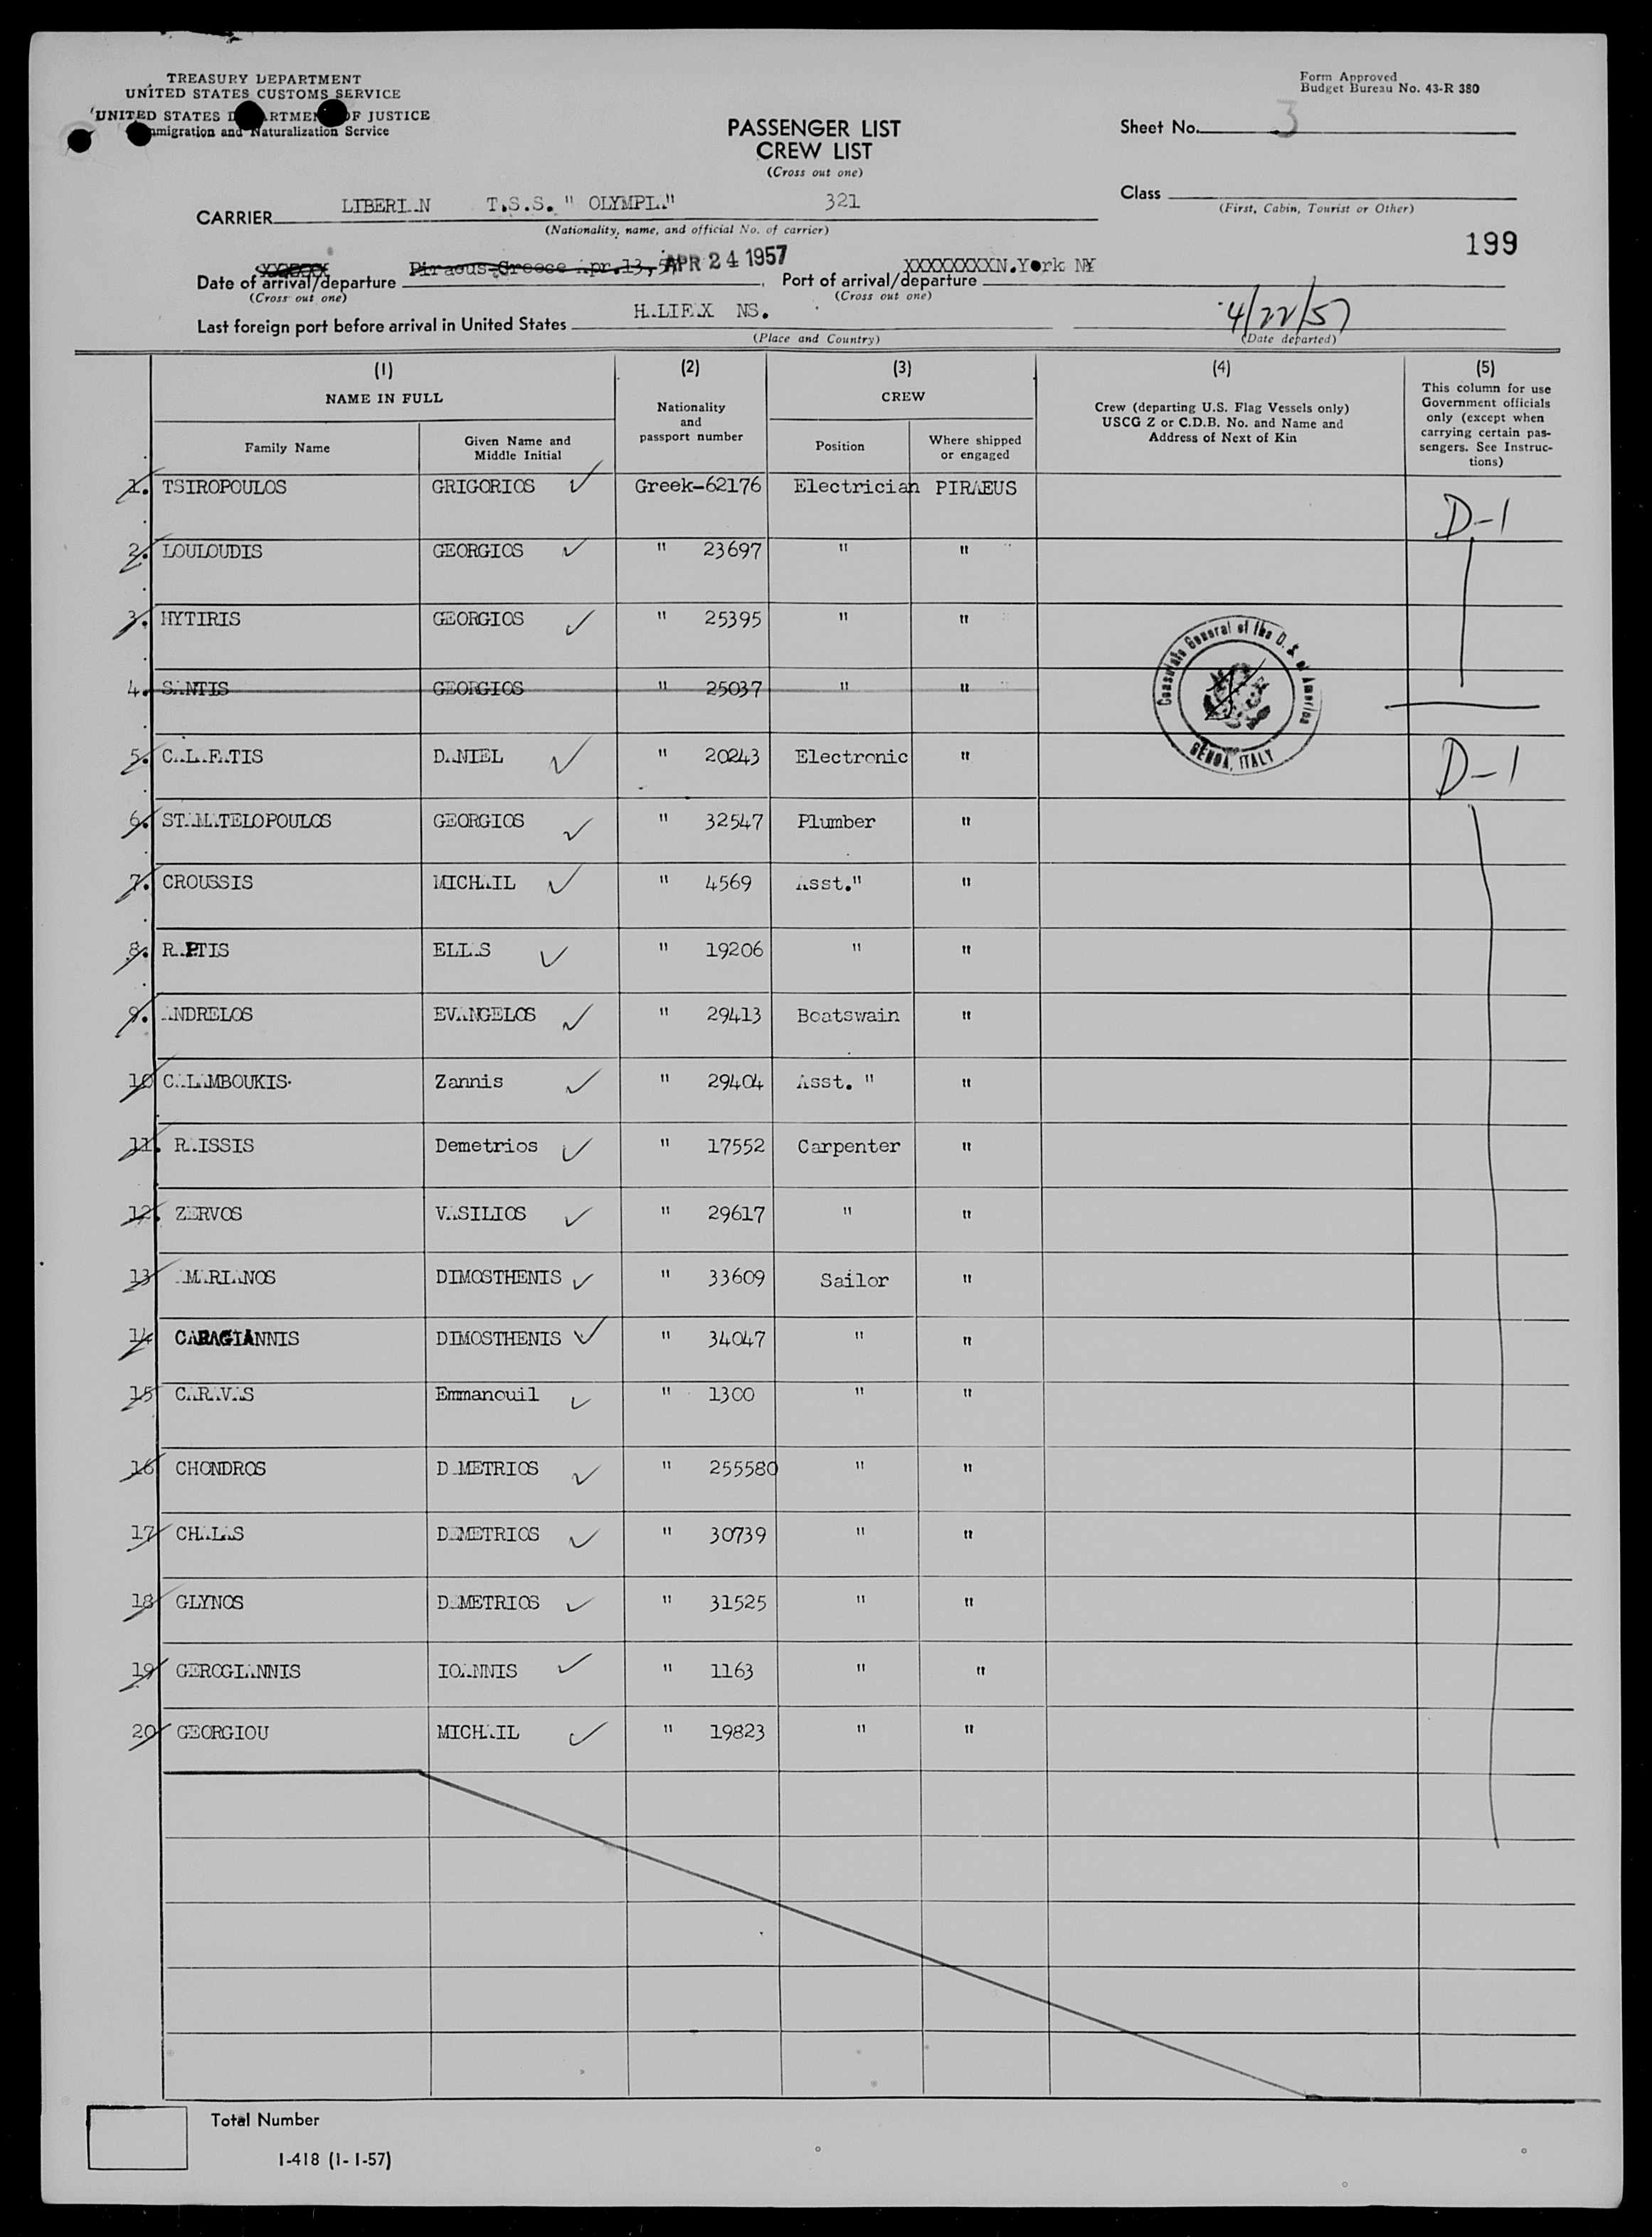 TREASURY DEPARTMENT
UNITED STATES CUSTOMS SERVICE
UNITED STATES DEPARTMENT OF JUSTICE
Immigration and Naturalization Service
Form Approved
Budget Bureau No. 43-R 380
PASSENGER LIST
CREW LIST
(Cross out one)
Sheet No. 3
Class
(First, Cabin, Tourist or Other)
CARRIER LIBERIAN T.S.S. " OLYMPIA" 321
(Nationality, name, and official No. of carrier)
199
Date of arrival/departure Piraeus-Greece Apr.13, 57 APR 24 1957 Port of arrival/departure XXXXXXXXN.York NY
(Cross out one) (Cross out one)
Last foreign port before arrival in United States HALIFAX NS. 4/22/57
(Place and Country) (Date departed)
(1) (2) (3) (4) (5)
NAME IN FULL
Family Name
Given Name and Middle Initial
Nationality and passport number
CREW
Position
Where shipped or engaged
Crew (departing U.S. Flag Vessels only)
USCG Z or C.D.B. No. and Name and
Address of Next of Kin
This column for use
Government officials
only (except when
carrying certain pas-
sengers. See Instruc-
tions)
1. TSIROPOULOS GRIGORIOS Greek-62176 Electrician PIRAEUS D-1
2. LOULOUDIS GEORGIOS " 23697 " "
3. HYTIRIS GEORGIOS " 25395 " "
4. SANTIS GEORGIOS " 25037 " "
Consulate General of the U. S. of America
GENOA, ITALY
5. CALAFATIS DANIEL " 20243 Electronic " D-1
6. STAMATELOPOULOS GEORGIOS " 32547 Plumber "
7. CROUSSIS MICHAIL " 4569 Asst." "
8. RAPTIS ELLAS " 19206 " "
9. ANDRELOS EVANGELOS " 29413 Boatswain "
10 CALAMBOUKIS Zannis " 29404 Asst. " "
11. RAISSIS Demetrios " 17552 Carpenter "
12. ZERVOS VASILIOS " 29617 " "
13 AMARIANOS DIMOSTHENIS " 33609 Sailor "
14 CARAGIANNIS DIMOSTHENIS " 34047 " "
15 CARAVAS Emmanouil " 1300 " "
16 CHONDROS DEMETRIOS " 255580 " "
17 CHALAS DEMETRIOS " 30739 " "
18 GLYNOS DEMETRIOS " 31525 " "
19 GEROGIANNIS IOANNIS " 1163 " "
20 GEORGIOU MICHAIL " 19823 " "
Total Number
I-418 (1-1-57)